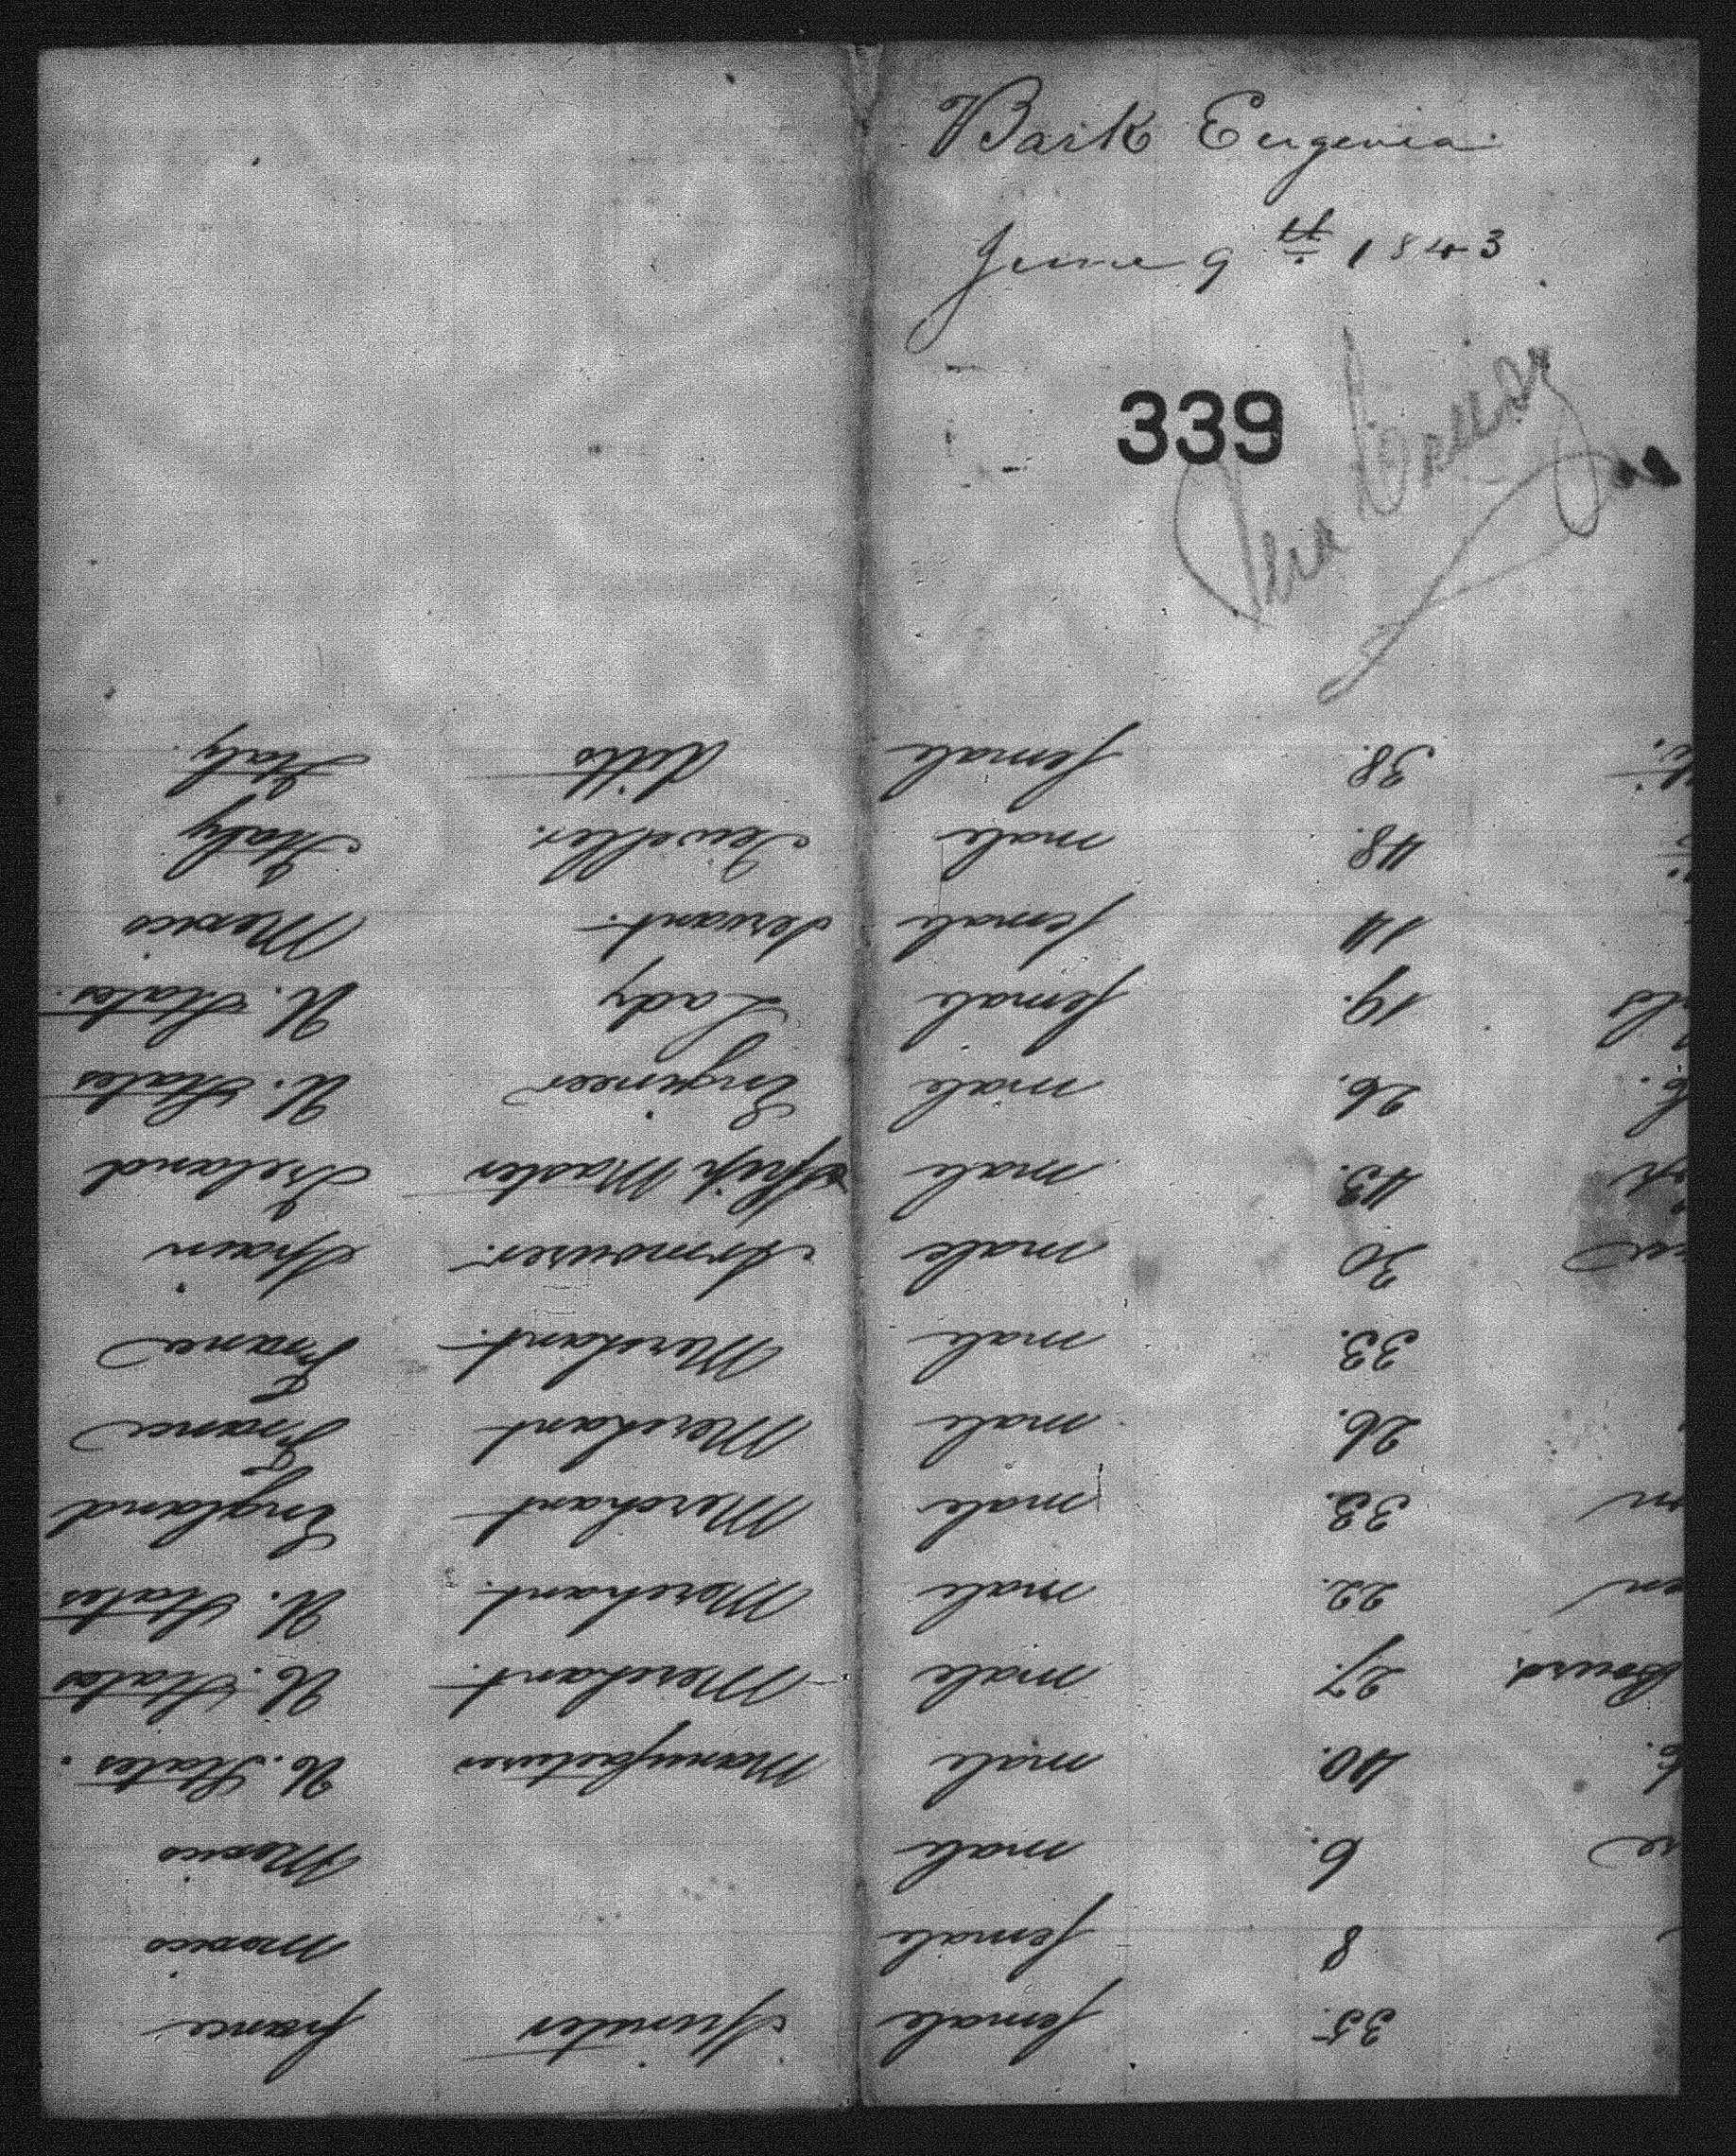 Bark Eugenia
June 9th 1843
339
35. female france
8 female Mexico
6. male Mexico
40. male Manufacturer U. States.
27. male Merchant. U. States
22. male Merchant. U. States
33. male Merchant England
26. male Merchant France
33. male Merchant. France
30 male Armourer. Spain
43. male Ship Master Ireland
26. male Engineer U. States
19. female Lady U. States.
14 female Servant. Mexico
48. male Jeweller. Italy
38. female ditto Italy.